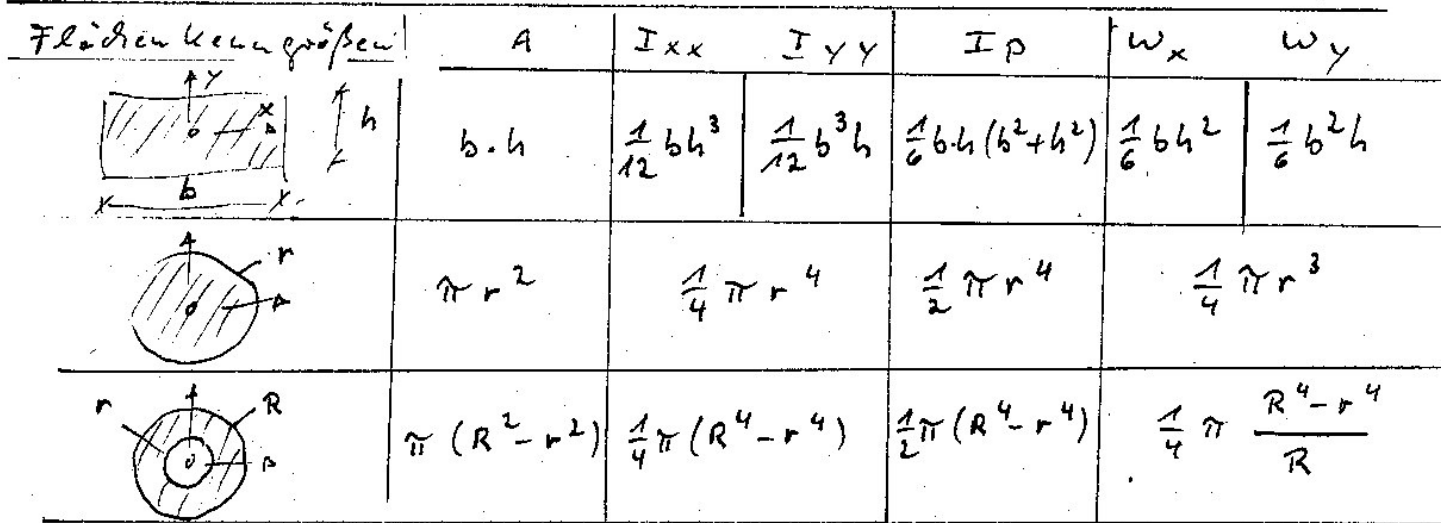 Flächenkenngrößen A Ixx Iyy Ip Wx Wy
y x h b b·h 1/12 bh³ 1/12 b³h 1/6 b·h(b²+h²) 1/6 bh² 1/6 b²h
r πr² 1/4 πr⁴ 1/2 πr⁴ 1/4 πr³
r R π(R²-r²) 1/4 π(R⁴-r⁴) 1/2 π(R⁴-r⁴) 1/4 π (R⁴-r⁴)/R